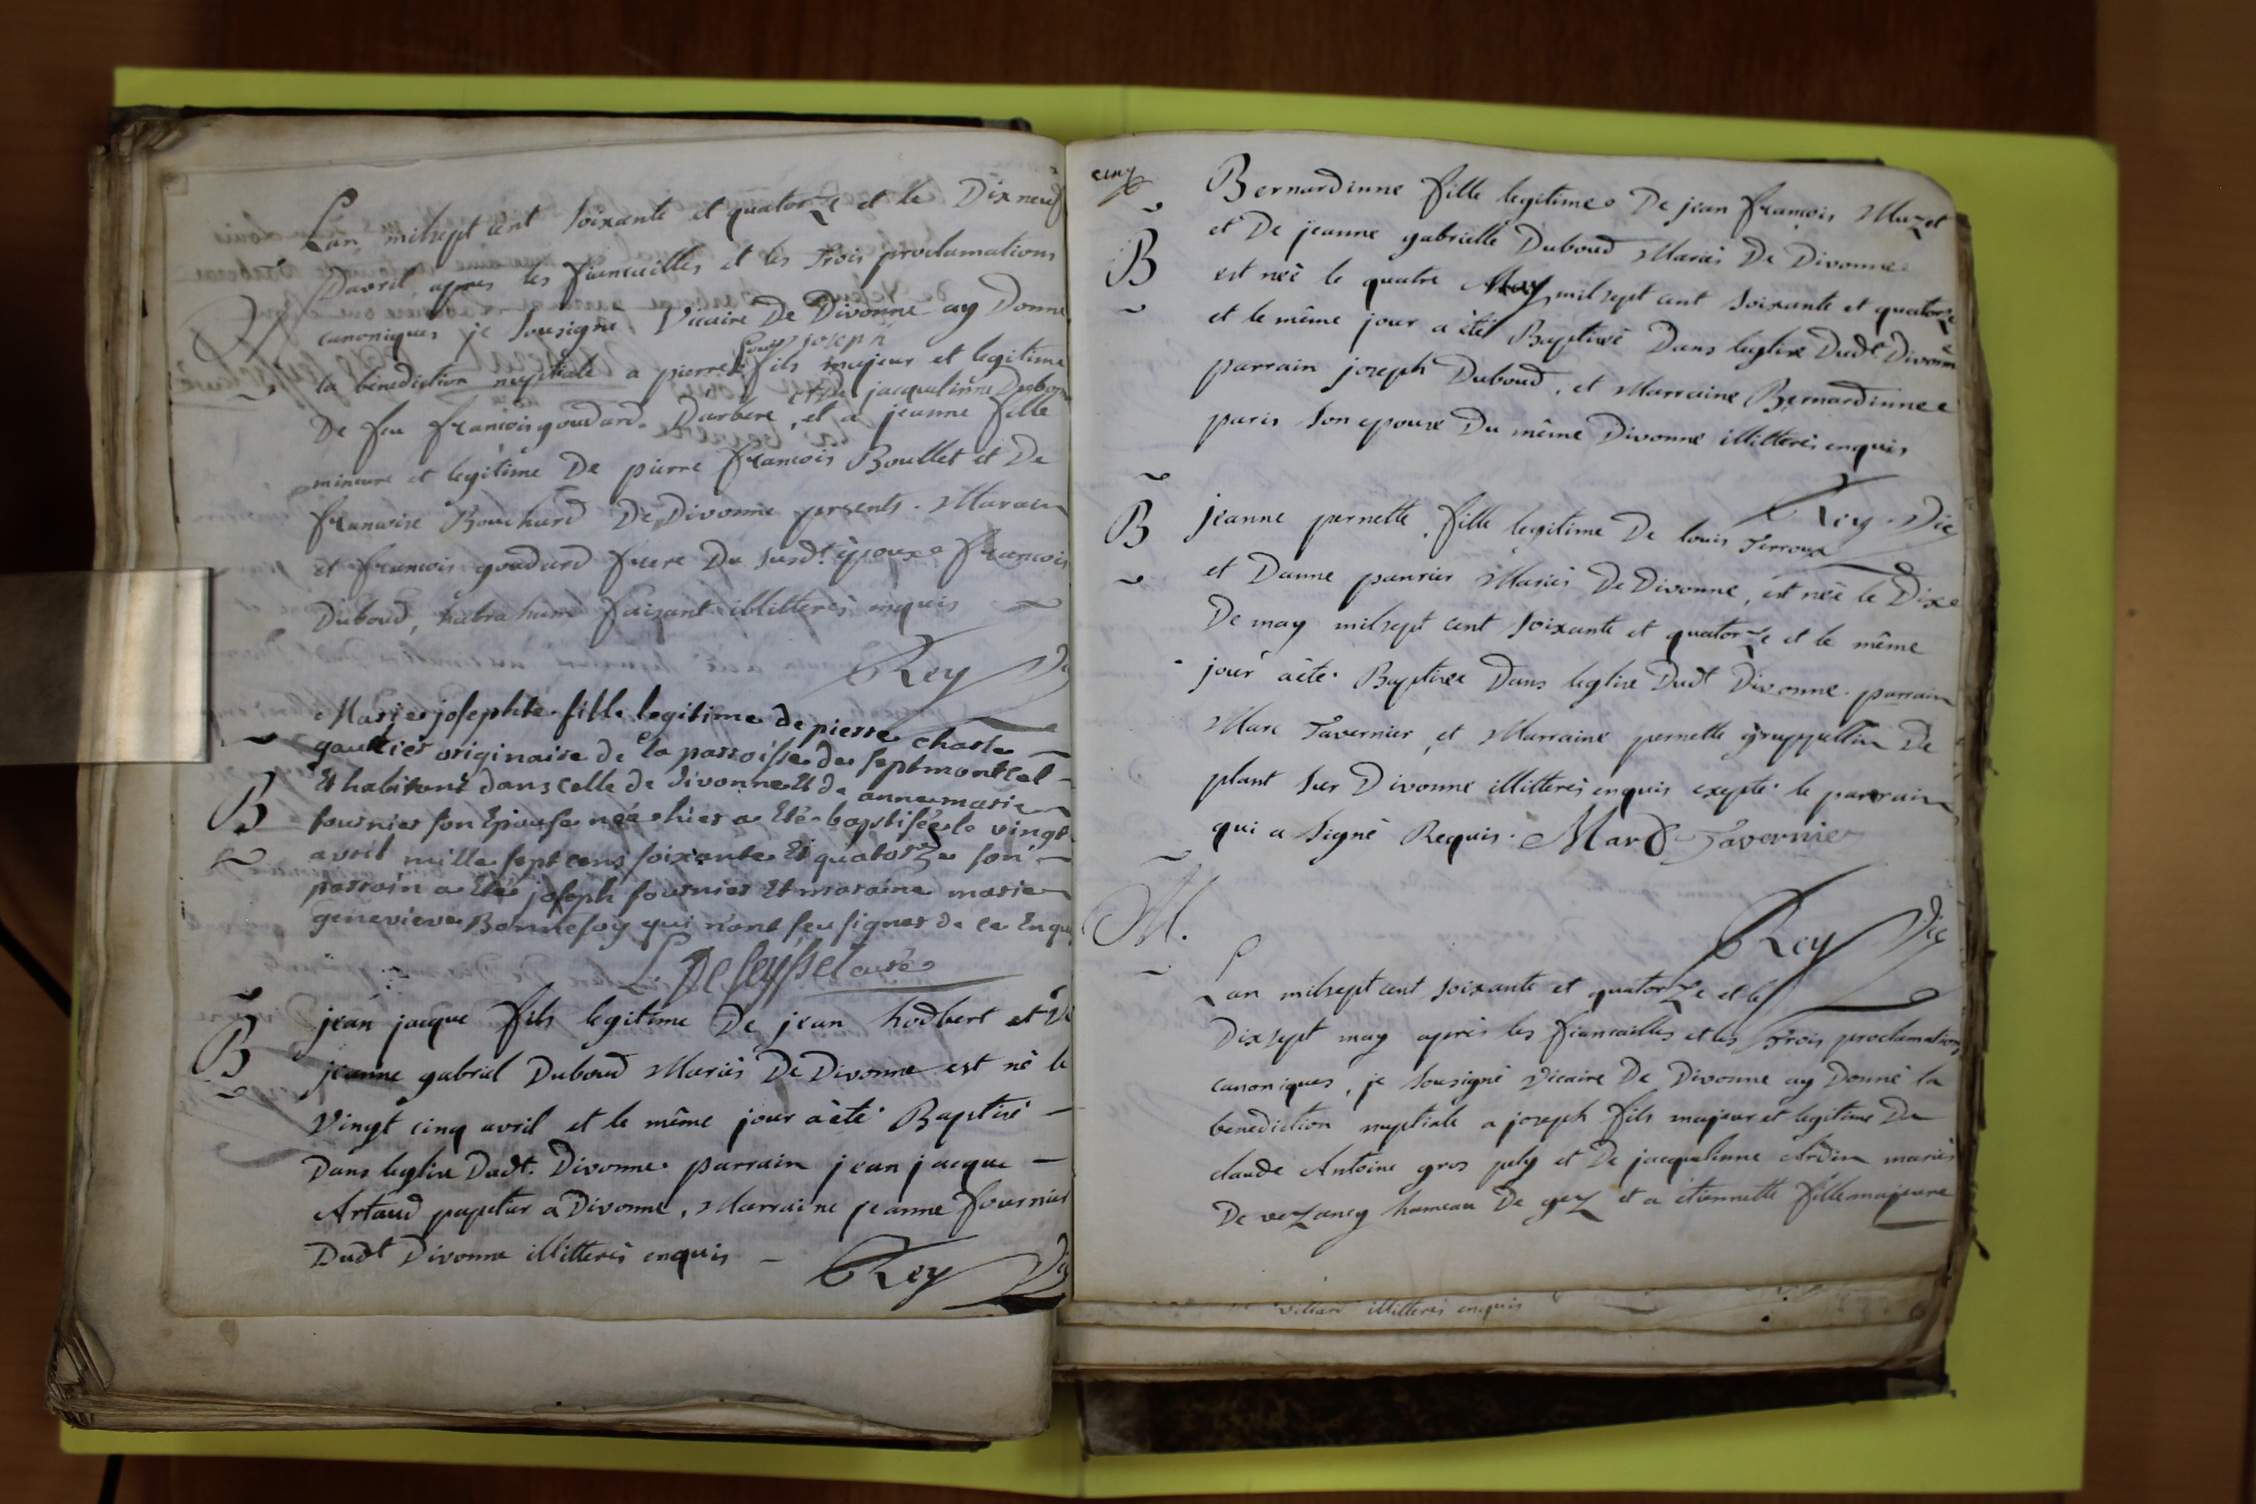 Lan milsept cent soixante et quatorze et le Dix neuf
Davril apres les fiancailles et les Trois proclamations
canoniques je sousigné Vicaire De Divonne ay Donné
Louis joseph
la bénediction nuptiale a pierre fils majeur et legitime
et de jacqueline Dubou
De feu francois goudard Darbere, et a jeanne fille
mineure et legitime De pierre francois Boullet et De
francoise Bouchard De Divonne presents. Marain
et francois goudard frere Du susdt époux francois
Duboud, habraham faizant illitterés enquis
Rey Vic
B
Marie josephte fille legitime de pierre charle
gautier originaire de la parroisse de septmontcel
Et habitant dans celle de divonne Et de anne marie
fournier son Epouse née hier a Eté baptisée le vingt
avril mille sept cens soixante Et quatorze son
parrain a Eté joseph fournier Et maraine marie
genevieve Bonnefoy qui n'ont seu signer de ce Enqu
L De seyssel curé
B
jean jacque fils legitime De jean hodbert et De
jeanne gabriel Duboud Mariés De Divonne est né le
Vingt cinq avril et le même jour a été Baptisé
Dans leglise Dudt Divonne parrain jean jacque
Artaud papetier a Divonne, Marraine jeanne fournier
Dudt Divonne illitterés enquis
Rey Vic
cinq
B
Bernardinne fille legitime De jean francois Muzet
et De jeanne gabrielle Duboud Mariés De Divonne
est née le quatre May milsept cent soixante et quatorze
et le même jour a été Baptisé Dans leglise Dudt Divonne
parrain joseph Duboud, et Marraine Bernardinne
paris son epouse Du même Divonne illitterés enquis
Rey Vic
B
jeanne pernette, fille legitime De louis Terroux
et Danne panrier Mariés De Divonne, est née le Dixe
De may milsept cent soixante et quatorze et le même
jour a été Baptisée Dans leglise Dudt Divonne parrain
Marc Tavernier et Marraine pernette De
plant sur Divonne illitterés enquis exepté le parrain
qui a signé Requis. Marc Tavernier
Rey Vic
M.
Lan milsept cent soixante et quatorze et le
Dixsept may après les fiancailles et les Trois proclamations
canoniques, je sousigné Vicaire De Divonne ay Donné la
benediction nuptiale a joseph fils majeur et legitime De
claude Antoine gros pely et De jacqueline Ardin mariés
De vezancy hameau De gez et a étiennette fille majeure
illitterés enquis